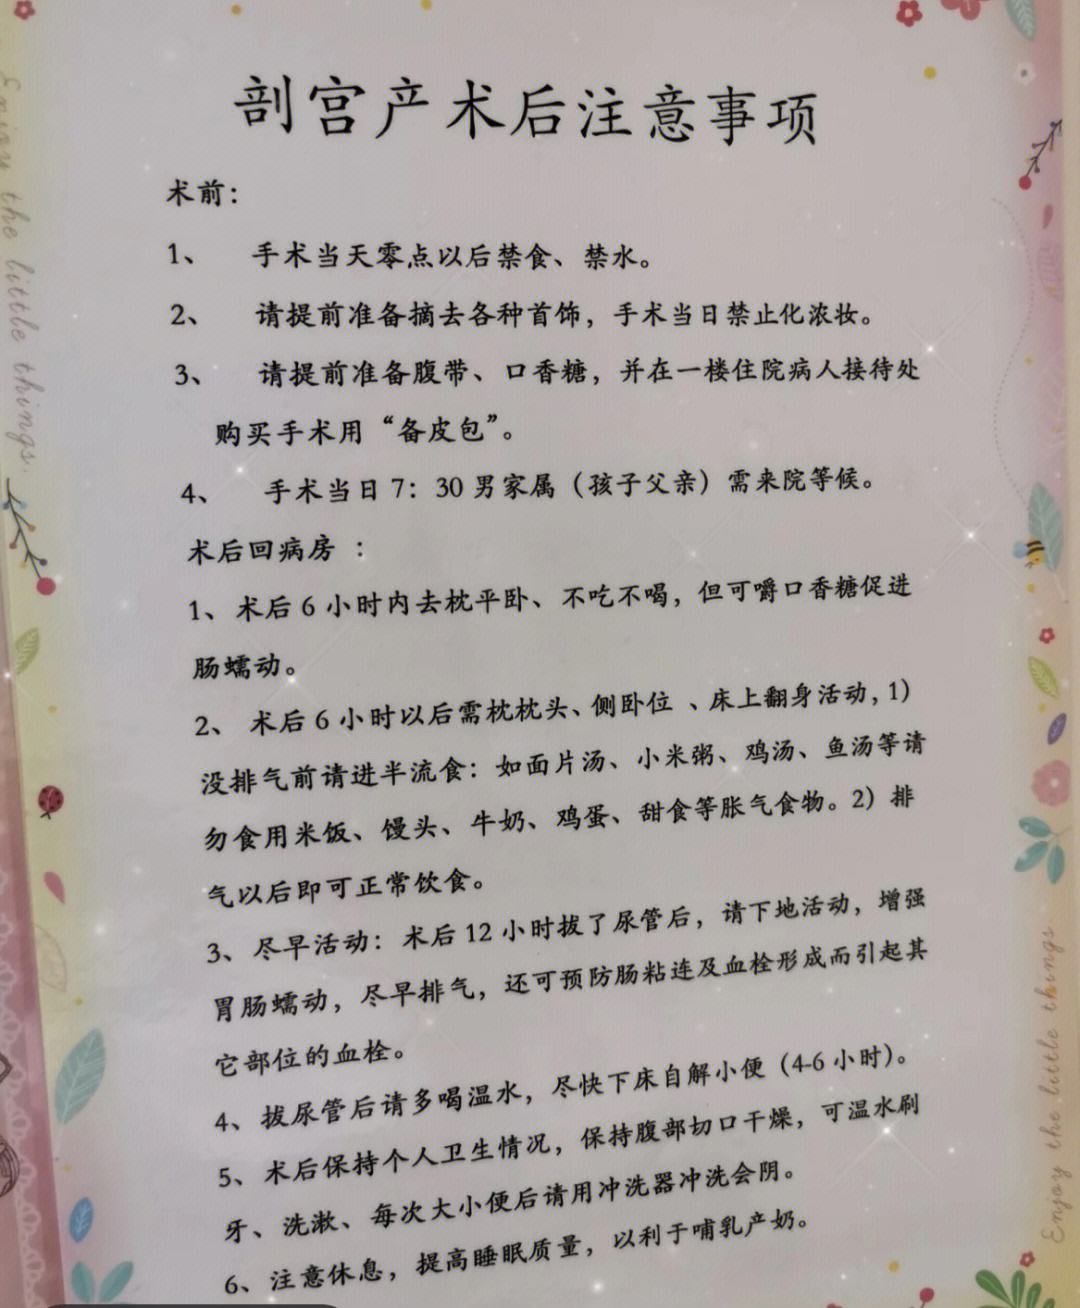 剖宫产术后注意事项
术前：
1、 手术当天零点以后禁食、禁水。
2、 请提前准备摘去各种首饰，手术当日禁止化浓妆。
3、 请提前准备腹带、口香糖，并在一楼住院病人接待处
购买手术用“备皮包”。
4、 手术当日7：30男家属（孩子父亲）需来院等候。
术后回病房 ：
1、术后6小时内去枕平卧、不吃不喝，但可嚼口香糖促进
肠蠕动。
2、 术后6小时以后需枕枕头、侧卧位 、床上翻身活动，1）
没排气前请进半流食：如面片汤、小米粥、鸡汤、鱼汤等请
勿食用米饭、馒头、牛奶、鸡蛋、甜食等胀气食物。2）排
气以后即可正常饮食。
3、尽早活动：术后12小时拔了尿管后，请下地活动，增强
胃肠蠕动，尽早排气，还可预防肠粘连及血栓形成而引起其
它部位的血栓。
4、拔尿管后请多喝温水，尽快下床自解小便（4-6小时）。
5、术后保持个人卫生情况，保持腹部切口干燥，可温水刷
牙、洗漱、每次大小便后请用冲洗器冲洗会阴。
6、注意休息，提高睡眠质量，以利于哺乳产奶。
Enjoy the little things.
Enjoy the little things